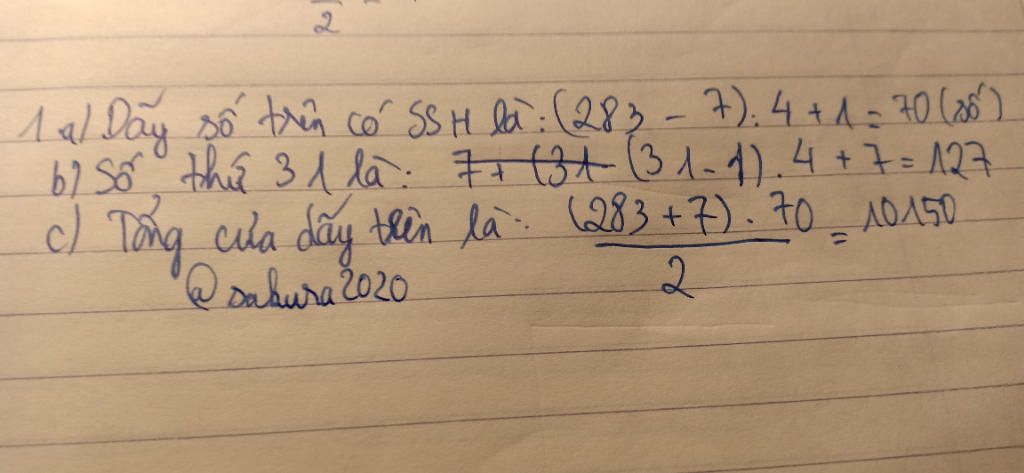 2
1 a) Dãy số trên có SSH là: (283 - 7) : 4 + 1 = 70 (số)
b) Số thứ 31 là: 7 + (31 - (31 - 1) . 4 + 7 = 127
c) Tổng của dãy trên là: (283 + 7) . 70 / 2 = 10150
@sakura2020